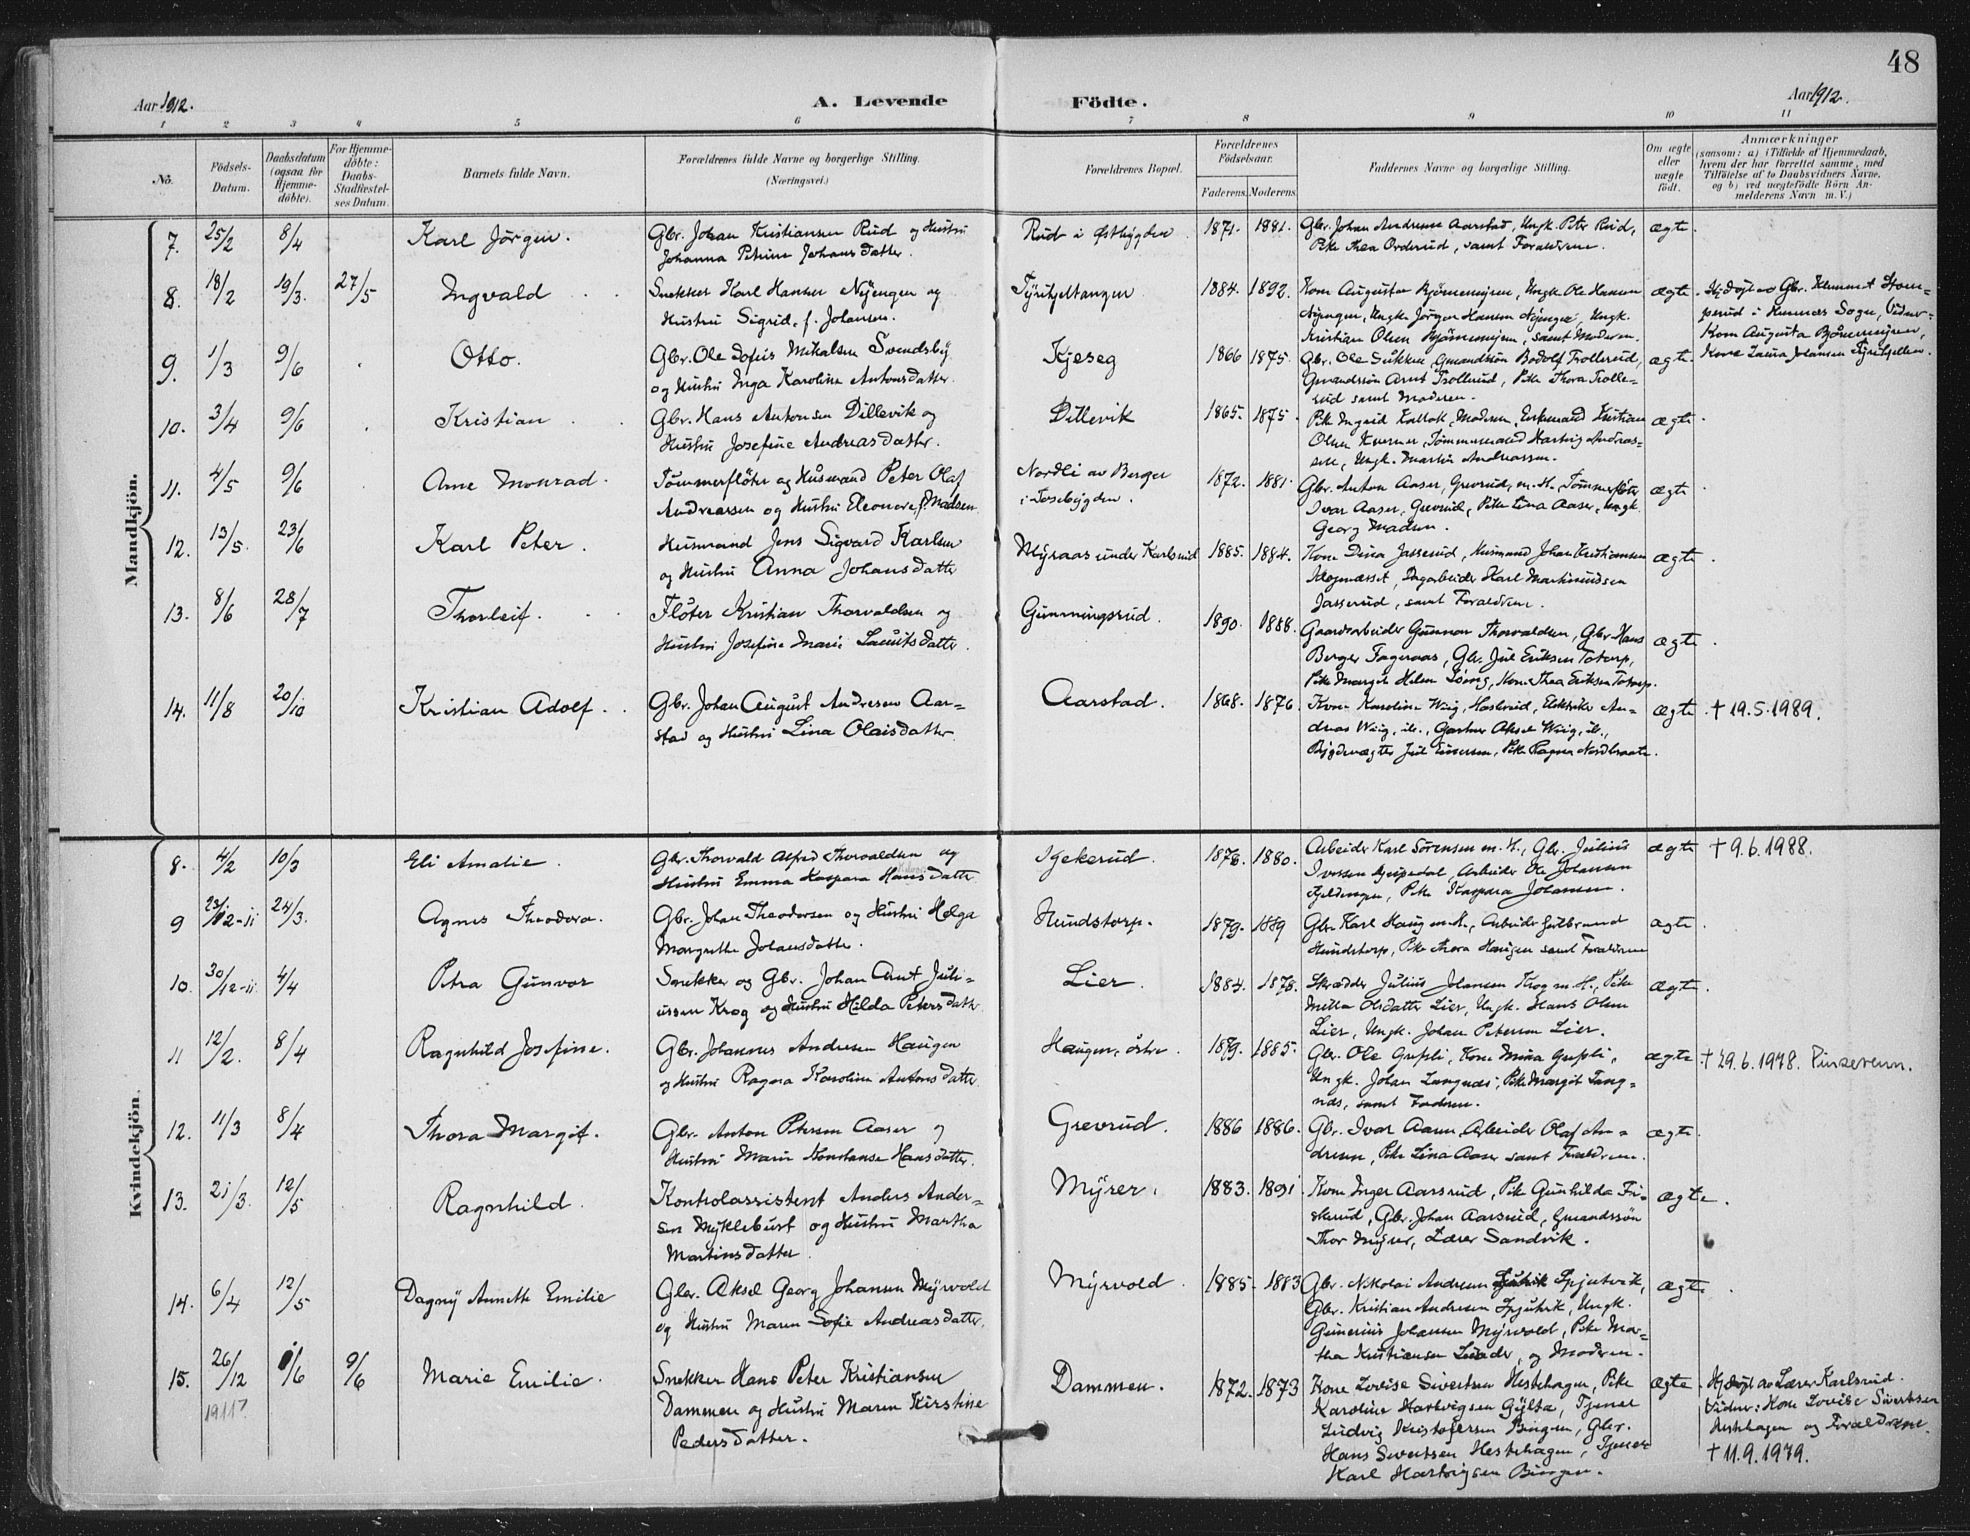 48
Aar 1912.
A. Levende
Födte.
Aar 1912.
1 2 3 4 5 6 7 8 9 10 11
No.
Födsels-
Datum.
Daabsdatum
(ogsaa for
Hjemme-
döbte).
For Hjemme-
döbte:
Daabs-
Stadfæstel-
ses Datum.
Barnets fulde Navn.
Forældrenes fulde Navne og borgerlige Stilling.
(Næringsvei.)
Forældrenes Bopæl.
Forældrenes
Födselsaar.
Faderens. Moderens.
Faddernes Navne og borgerlige Stilling.
Om ægte
eller
uægte
födt.
Anmærkninger
(saasom: a) i Tilfælde af Hjemmedaab,
hvem der har forrettet samme, med
Tilföielse af to Daabsvidners Navne,
og b) ved uegtefödte Börn An-
melderens Navn m. V.)
Mandkjön.
7. 25/2 8/4 Karl Jörgen.
Gbr. Johan Kristiansen Rud og Hustru
Johanna Petrine Johansdatter.
Rud i Østbygden 1871. 1881.
Gbr. Johan Andresen Aarstad, Ungk. Peter Rud,
Pike Thea Orderud, samt Forældrene.
ægte
8. 18/2 19/3. 27/5 Ingvald
Snekker Karl Hansen Nyengen og
Hustru Sigrid, f. Johansen.
1884. 1892.
Kone Augusta Bjørnemyren, Ungk. Ole Hansen
Nyengen, Ungk. Jörgen Hansen Nyengen, Ungk.
Kristian Olsen Bjørnemyren, samt Moderen.
ægte
Kone Augusta Bjørnemyren,
9. 1/3 9/6 Otto.
Gbr. Ole Sofus Mikalsen Svendsby
og Hustru Inga Karoline Antonsdatter.
Kjeseg 1866 1875.
Gmandssön Arnt Trollerud, Pike Thora Trolle-
rud samt Moderen.
ægte
10. 3/4 9/6 Kristian
Gbr. Hans Antonsen Dillevik og
Hustru Josefine Andreasdatter.
Dillevik 1865. 1875.
sen, Ungk. Martin Andreassen.
ægte
11. 4/5 9/6 Arne Monrad.
Tömmerflöter og Husmand Peter Olaf
Andreassen og Hustru Eleonore f. Madsen.
Nordli av Berger
i Tosebygden. 1872. 1881.
Gbr. Anton Aaser, Grevrud, m. H., Tömmerflöter
Ivar Aaser, Grevrud, Pike Lina Aaser, Ungk.
Georg Madsen.
ægte
12. 13/5. 23/6 Karl Peter.
Husmand Jens Sigvard Karlsen
og Hustru Anna Johansdatter
Myraas under Karlsrud 1885. 1884.
Kone Dina Jasserud, Husmand Johan Kristiansen
Skognæsset, Dagarbeider Karl Martiniussen
Jasserud, samt Forældrene.
ægte
13. 8/6 28/7 Thorleif.
Flöter Kristian Thorvaldsen og
Hustru Josefine Marie Lauritsdatter.
Gunningsrud. 1890. 1888.
Gaardsarbeider Gunnar Thorvaldsen, Gbr. Hans
Berger Fageraas, Gbr. Jul Eriksen Totorp,
ægte
14. 11/8 20/10 Kristian Adolf.
Gbr. Johan August Andresen Aar-
stad og Hustru Lina Olaisdatter.
Aarstad. 1868. 1876.
Kone Karoline Wiig, Haslerud, Elektriker An-
dreas Wiig, ib., Gartner Aksel Wiig, ib.,
ægte † 19.5.1989.
Kvindekjön.
8. 4/2 10/3 Eli Amalie.
Gbr. Thorvald Alfred Thorvaldsen og
Hustru Emma Kaspara Hansdatter
Igekerud. 1878. 1880.
Arbeider Karl Sörensen m. H., Gbr. Julius
ægte † 9.6.1988.
9 23/12-11 24/3. Agnes Theodora.
Gbr. Johan Theodorsen og Hustru Helga
Margrethe Johansdatter.
Hundstorp. 1879. 1889
Gbr. Karl Haug m. H., Arbeider Gulbrand
Hundstorp, Pike Thora Haugen samt Forældrene
ægte
10. 30/12-11 4/4 Petra Gunvor
Snekker og Gbr. Johan Arnt Juli-
ussen Krog og Hustru Hilda Petersdatter
Lier. 1884. 1878.
Skrædder Julius Johansen Krog m. H., Pike
Milla Olsdatter Lier, Ungk. Hans Olsen
Lier, Ungk. Johan Petersen Lier.
ægte
11 12/2. 8/4 Ragnhild Josefine.
Gbr. Johannes Andresen Haugen
og Hustru Ragna Karoline Antonsdatter.
Haugen, östre. 1879. 1885.
Ungk. Johan Langnes, Pike Margit Lang-
nes, samt Faderen.
ægte † 29.6.1978. Pinsevenn.
12. 11/3 8/4 Thora Margit.
Gbr. Anton Petersen Aaser og
Hustru Marie Konstanse Hansdatter.
Grevrud. 1886 1886.
Gbr. Ivar Aasen, Arbeider Olaf An-
dresen, Pike Lina Aaser samt Forældrene.
ægte
13. 21/3. 12/5 Ragnhild.
Kontrolassistent Anders Ander-
sen Myklebust og Hustru Martha
Martinsdatter.
Myrer. 1883. 1891
Kone Inger Aarsrud, Pike Gunhilda Fri-
skerud, Gbr. Johan Aarsrud, Gmandssön
Thor Myrer, Lærer Sandvik.
ægte
14. 6/4 12/5 Dagny Annette Emilie
Gbr. Aksel Georg Johansen Myrvold
og Hustru Maren Sofie Andreasdatter.
Myrvold 1885. 1883
Gbr. Nikolai Andresen Spjutvik,
Gbr. Kristian Andresen Spjutvik, Ungk.
Gunerius Johansen Myrvold, Pike Mar-
tha Kristiansen Lunder, og Moderen.
ægte
15. 26/12 1911? 9/6 Marie Emilie.
Snekker Hans Peter Kristiansen
Dammen og Hustru Maren Kirstine
Pedersdatter.
Dammen. 1872. 1873
Kone Lovise Sivertsen Hestehagen, Pike
Karoline Hartvigsen Gylta, Tjener
Ludvig Kristofersen Bingen, Gbr.
Hans Sivertsen Hestehagen, Tjener
Karl Hartvigsen Bingen.
ægte
Hjdöpt av Lærer Karlsrud.
Vidner: Kone Lovise Sivertsen
Hestehagen og Forældrene.
† 11.9.1979.